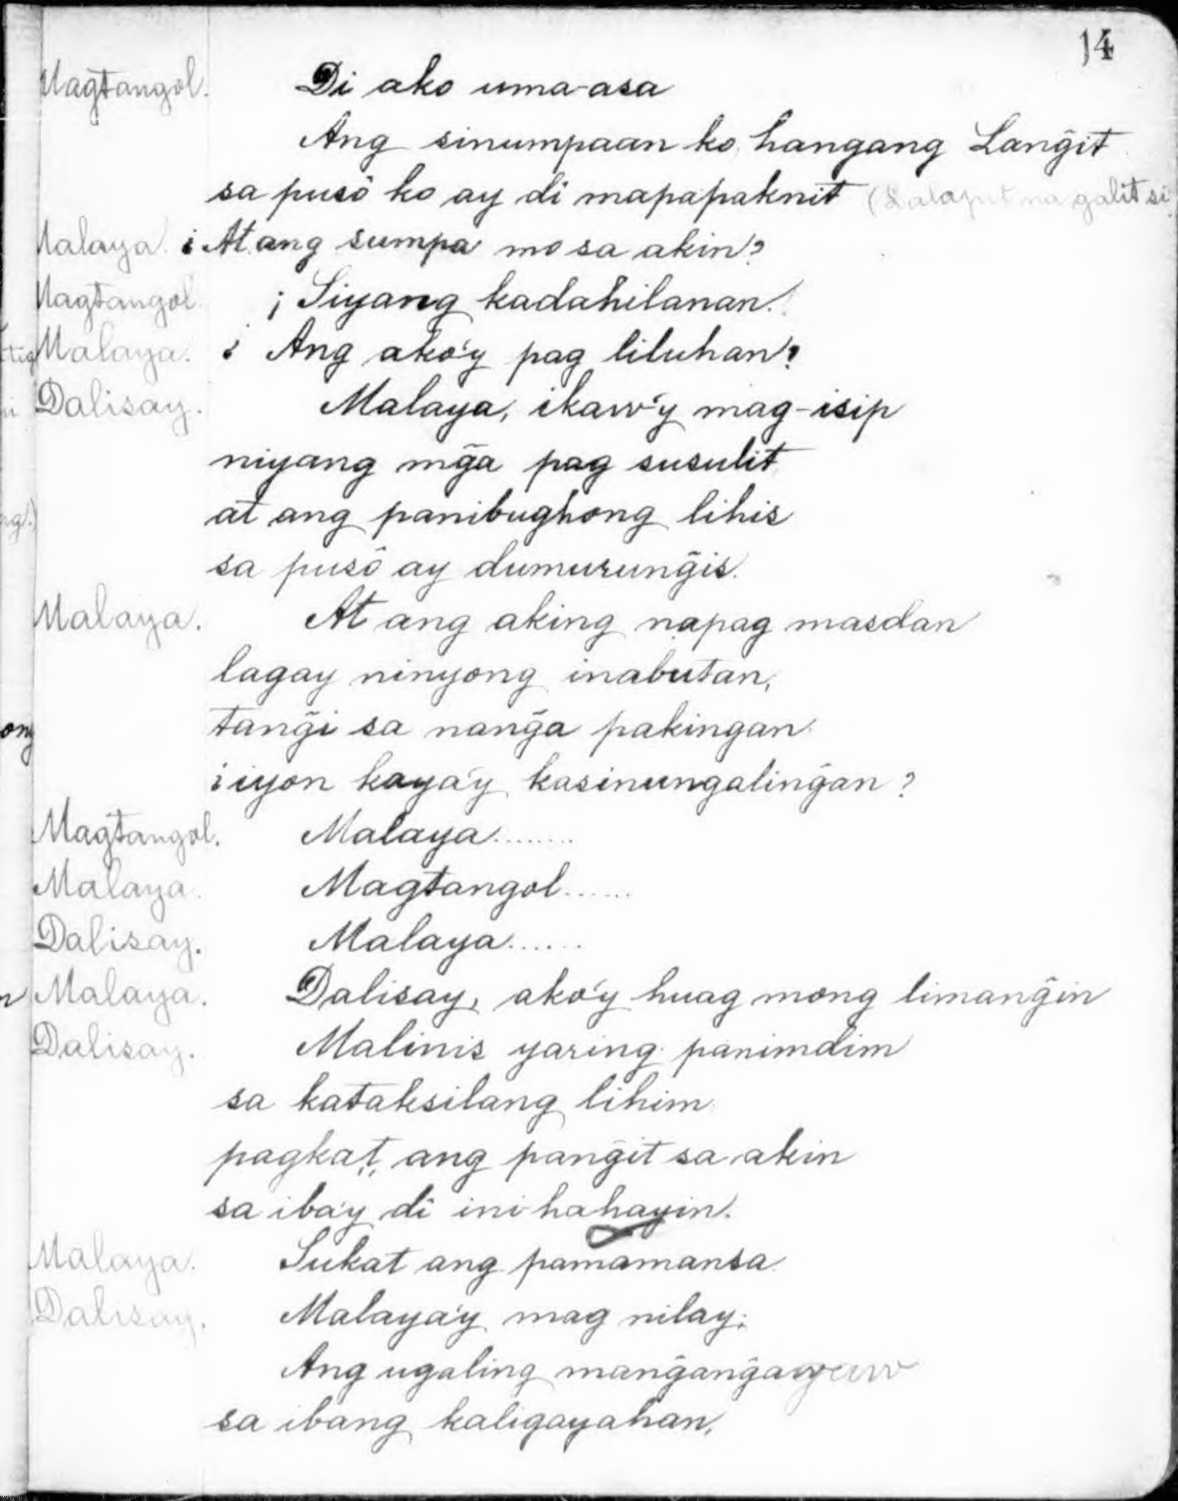 14
Magtangol. Di ako uma-asa
Ang sinumpaan ko hangang Lang̃it
sa pusô ko ay di mapapaknit (Lalapit na galit si
Malaya. ¿At ang sumpa mo sa akin?
Magtangol ¡Siyang kadahilanan!
Malaya. ¿Ang ako'y pag liluhan?
Dalisay. Malaya, ikaw'y mag-isip
niyang mg̃a pag susulit
at ang panibughong lihis
sa pusô ay dumurung̃is.
Malaya. At ang aking napag masdan
lagay ninyong inabutan,
tang̃i sa nang̃a pakingan
¿iyon kaya'y kasinungaling̃an?
Magtangol. Malaya........
Malaya. Magtangol......
Dalisay. Malaya......
Malaya. Dalisay, ako'y huag mong limang̃in
Dalisay. Malinis yaring panimdim
sa kataksilang lihim
pagka't, ang pang̃it sa akin
sa iba'y di ini-hahayin.
Malaya. Sukat ang pamamansa
Dalisay. Malaya'y mag nilay;
Ang ugaling mang̃ang̃agaw
sa ibang kaligayahan,